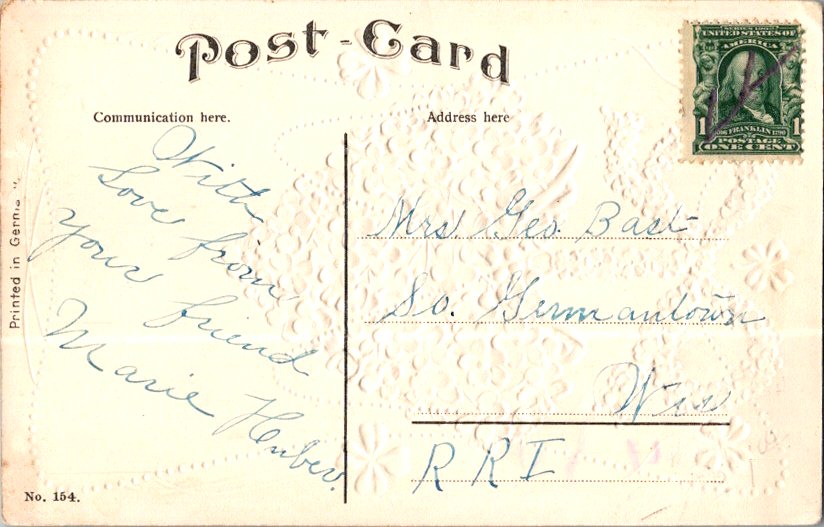 Post-Card
Communication here.
Address here
SERIES 1902
UNITED STATES OF
AMERICA
1 FRANKLIN 1790 1
POSTAGE
ONE CENT
With
Love from
your friend
Marie
Mrs Geo. Bast
So. Germantown
Wis
R R I
Printed in
No. 154.